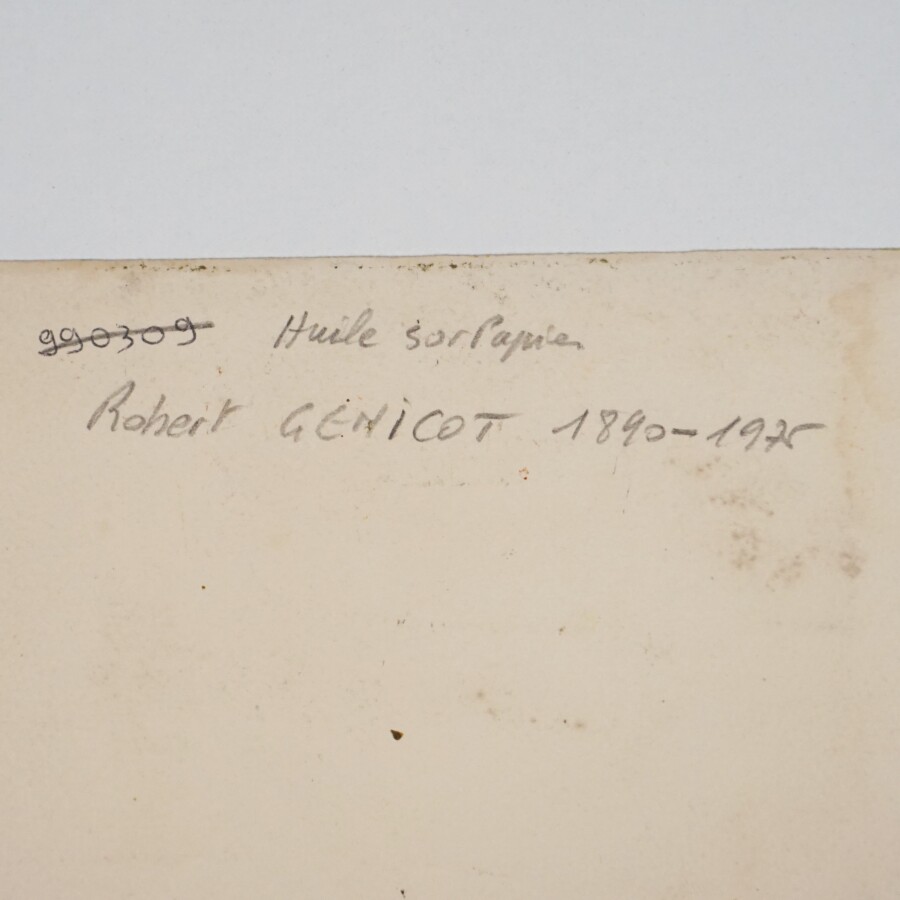 990309 Huile sur Papier
Robert GENICOT 1890-1975